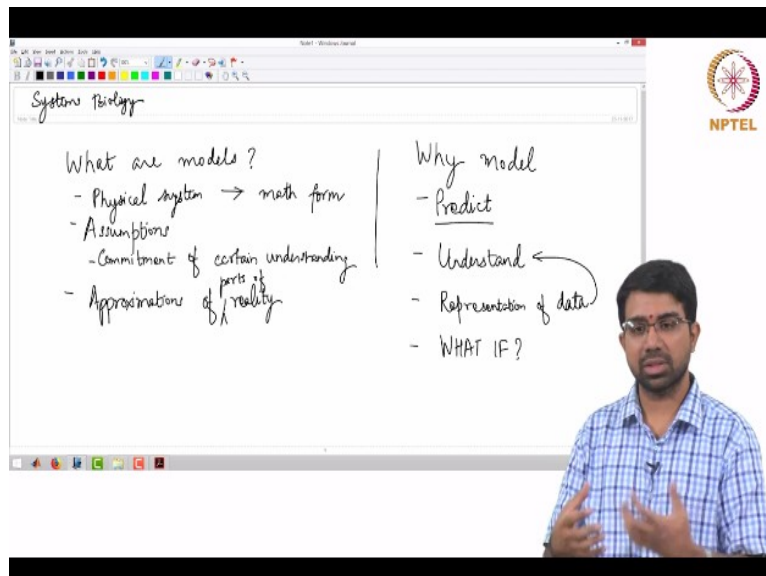 Note1 - Windows Journal
Systems Biology
What are models?
- Physical system → math form
- Assumptions
- Commitment of certain understanding
- Approximations of parts of reality
Why model
- Predict
- Understand
- Representation of data
- WHAT IF?
NPTEL